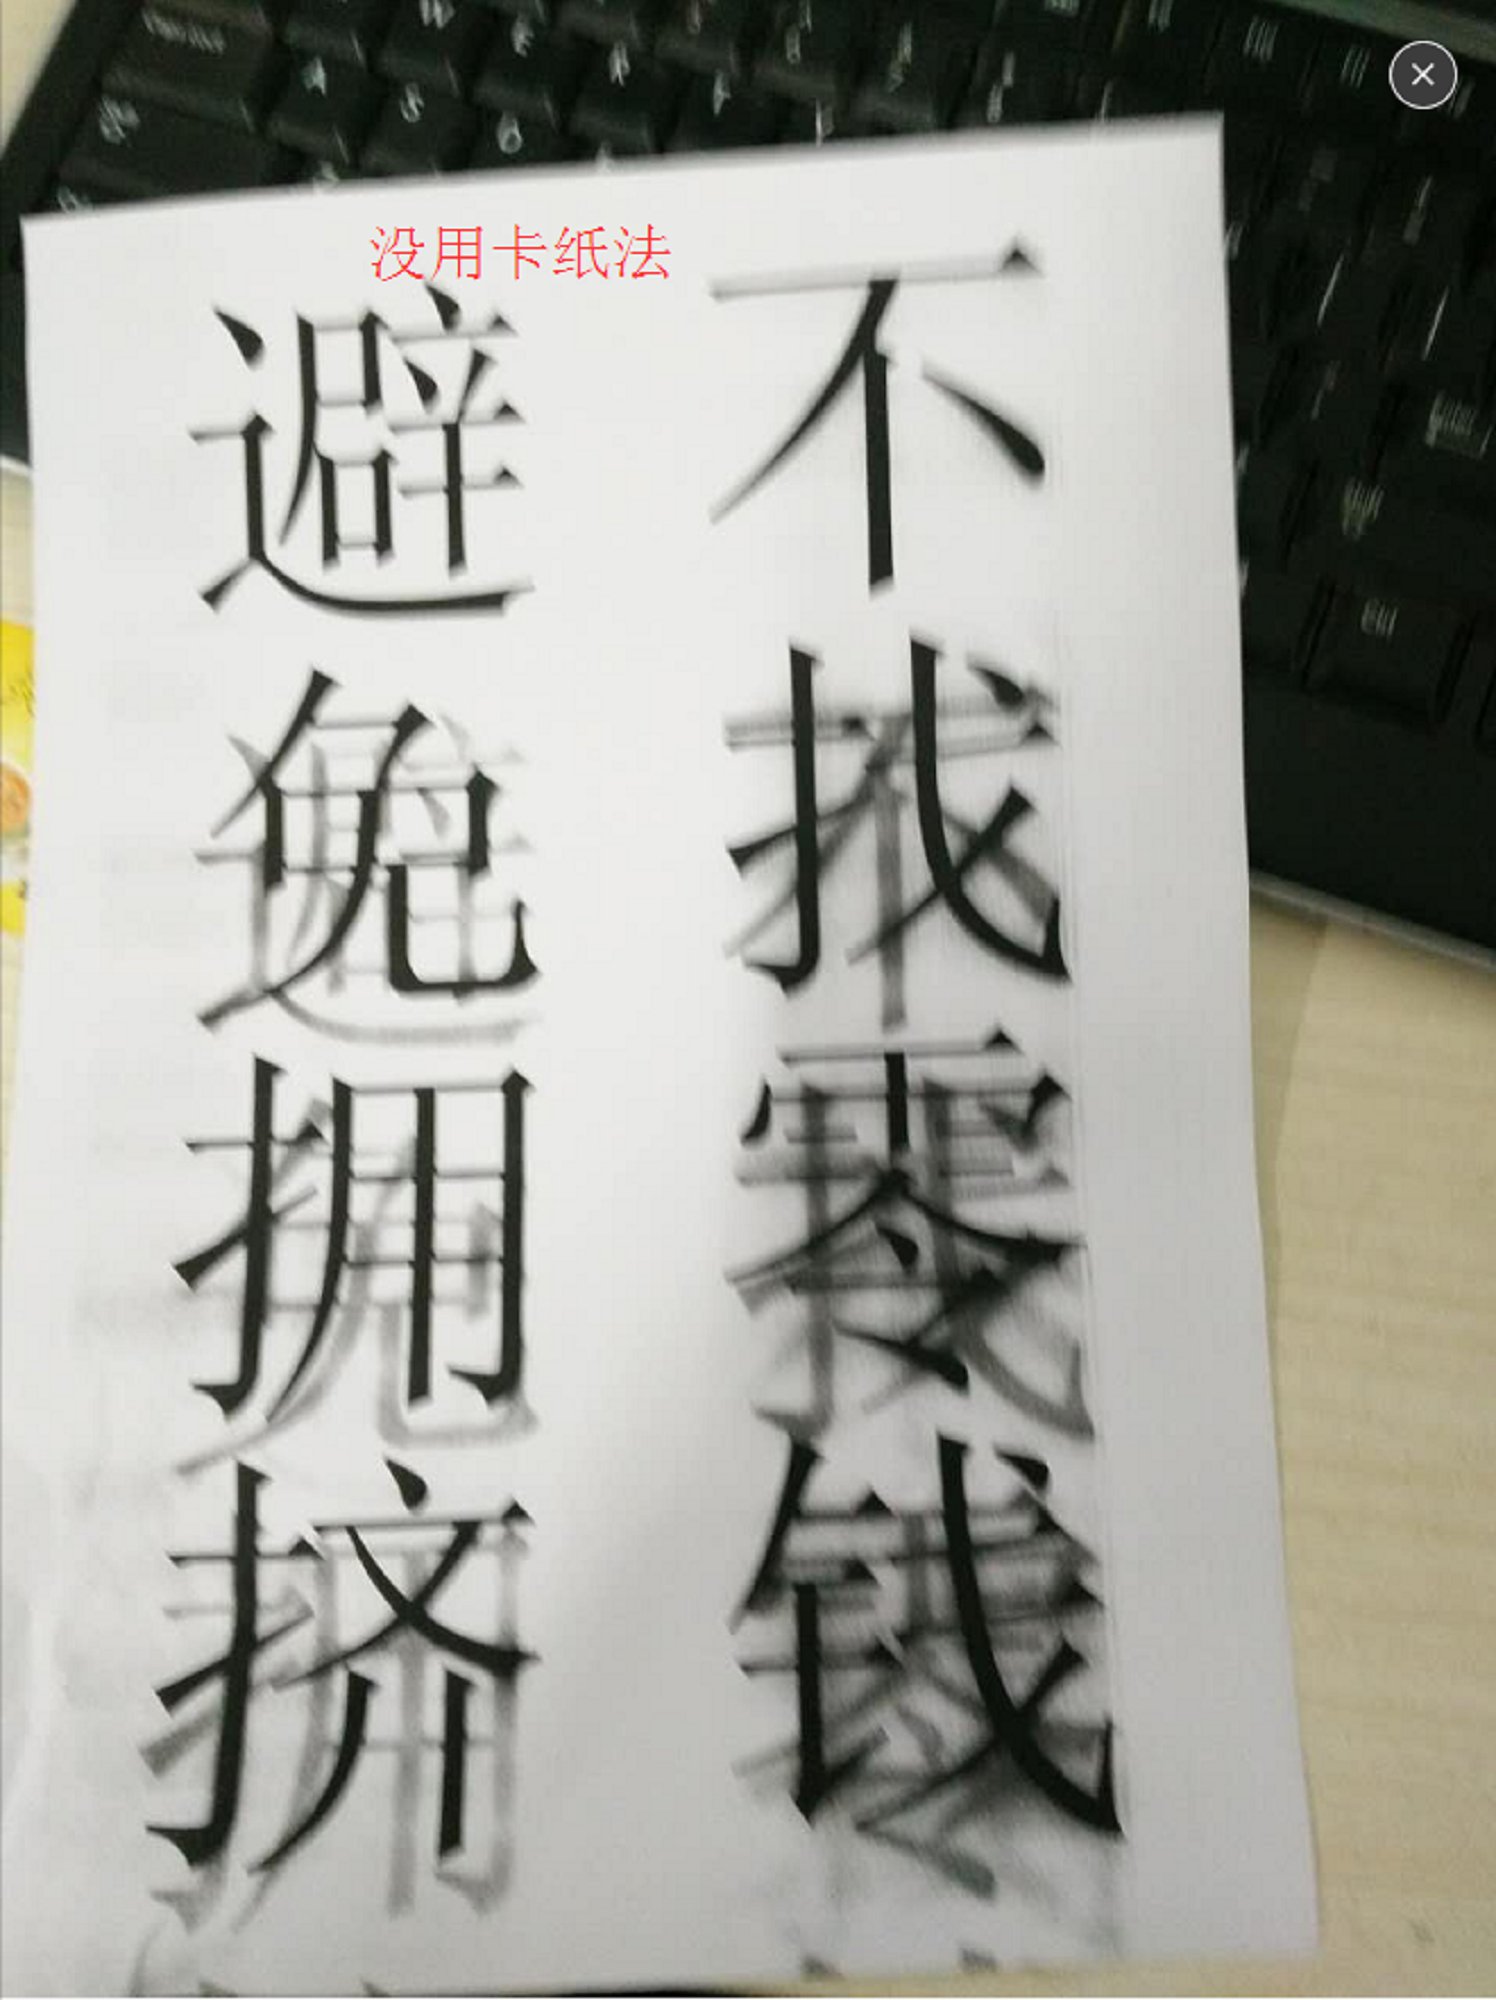 没用卡纸法
不找零钱
避免拥挤